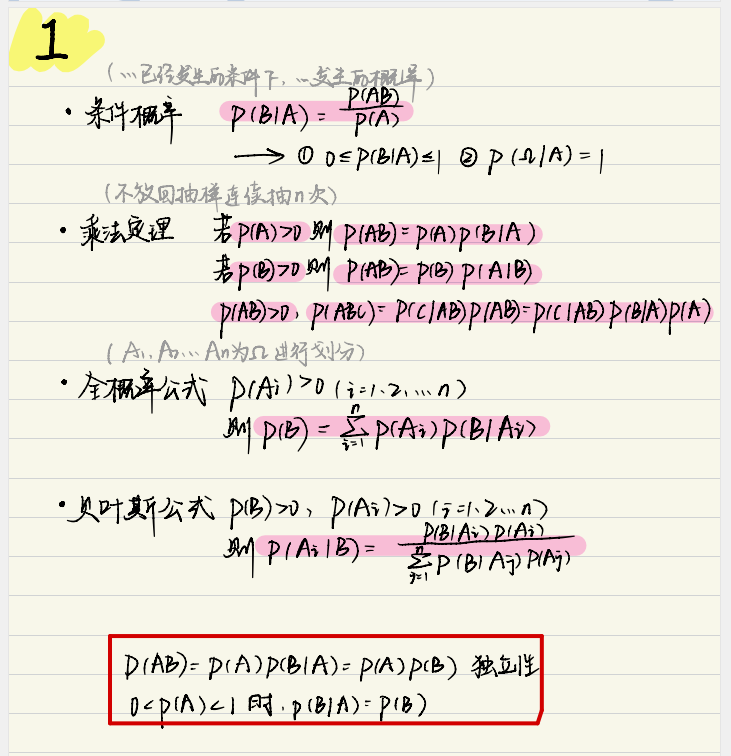 1
(…已经发生的条件下，…发生的概率)
· 条件概率 P(B|A) = P(AB)/P(A)
→ ① 0≤P(B|A)≤1 ② P(Ω|A)=1
(不放回抽样连续抽n次)
· 乘法定理 若P(A)>0 则 P(AB)=P(A)P(B|A)
若P(B)>0 则 P(AB)=P(B)P(A|B)
P(AB)>0, P(ABC)=P(C|AB)P(AB)=P(C|AB)P(B|A)P(A)
(A₁、A₂…An为Ω进行划分)
· 全概率公式 P(Ai)>0 (i=1、2,…n)
则 P(B) = ∑_{i=1}^{n} P(Ai)P(B|Ai)
· 贝叶斯公式 P(B)>0, P(Ai)>0 (i=1、2…n)
则 P(Ai|B) = P(B|Ai)P(Ai) / ∑_{j=1}^{n} P(B|Aj)P(Aj)
P(AB)=P(A)P(B|A)=P(A)P(B) 独立性
0<P(A)<1 时, P(B|A)=P(B)